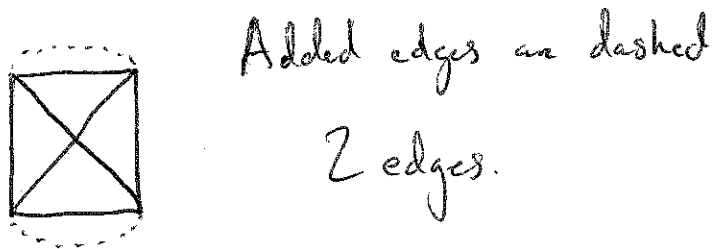 Added edges are dashed
2 edges.